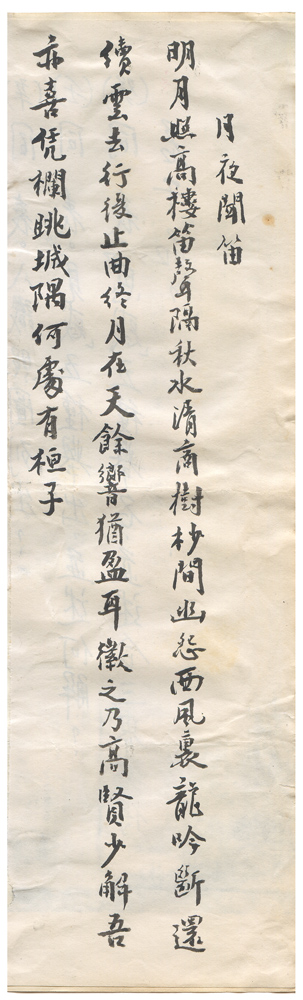 月夜聞笛
明月照高樓笛聲隔秋水清商樹杪間幽怨西風裏龍吟斷還
續雲去行復止曲終月在天餘響猶盈耳徽之乃高賢少解吾
亦喜凭欄眺城隅何處有桓子